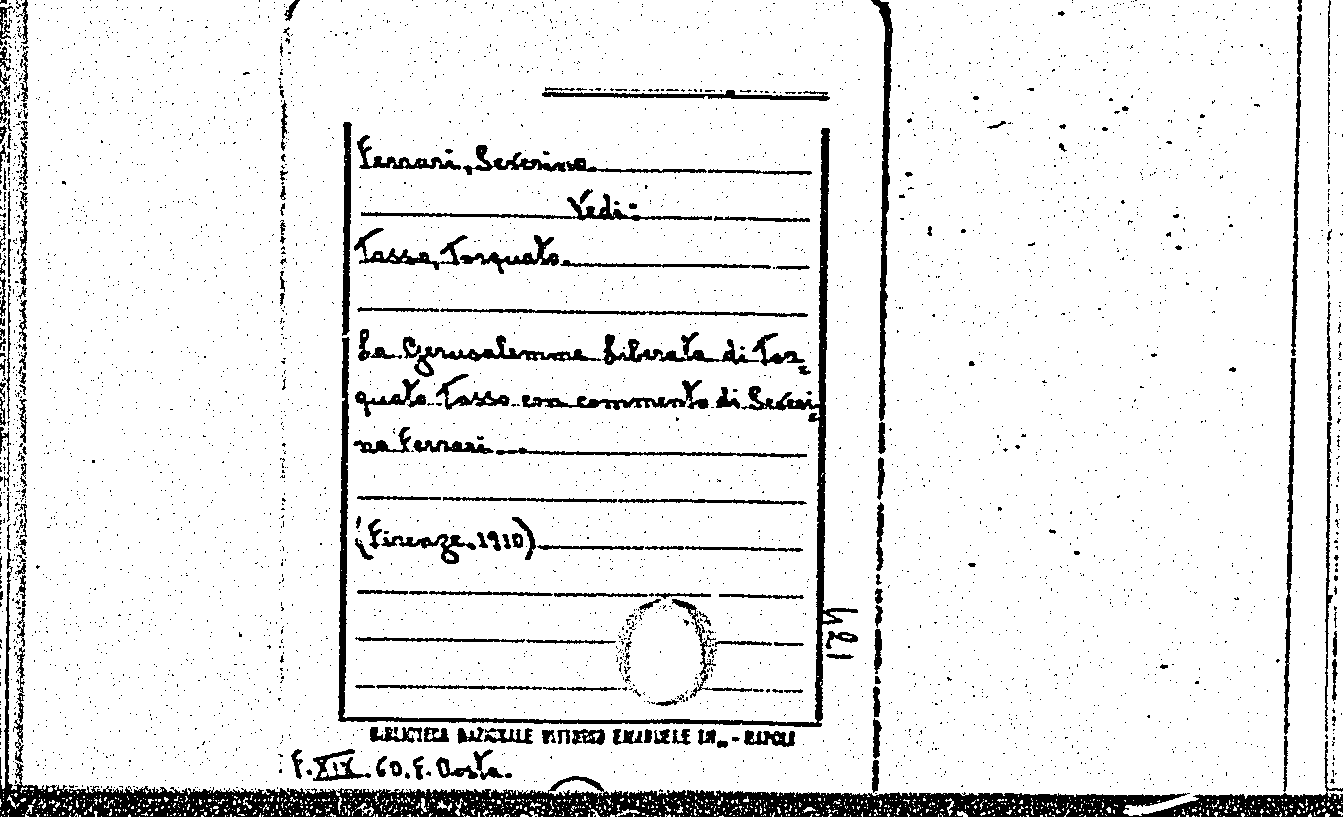 Ferrari, Severino.
Vedi:
Tasso, Torquato.
La Gerusalemme Liberata di Tor=
quato Tasso con commento di Severi=
no Ferrari...
(Firenze.1910)
421
BIBLIOTECA NAZIONALE VITTORIO EMANUELE III - NAPOLI
F. XIX. 60. F. Aosta.